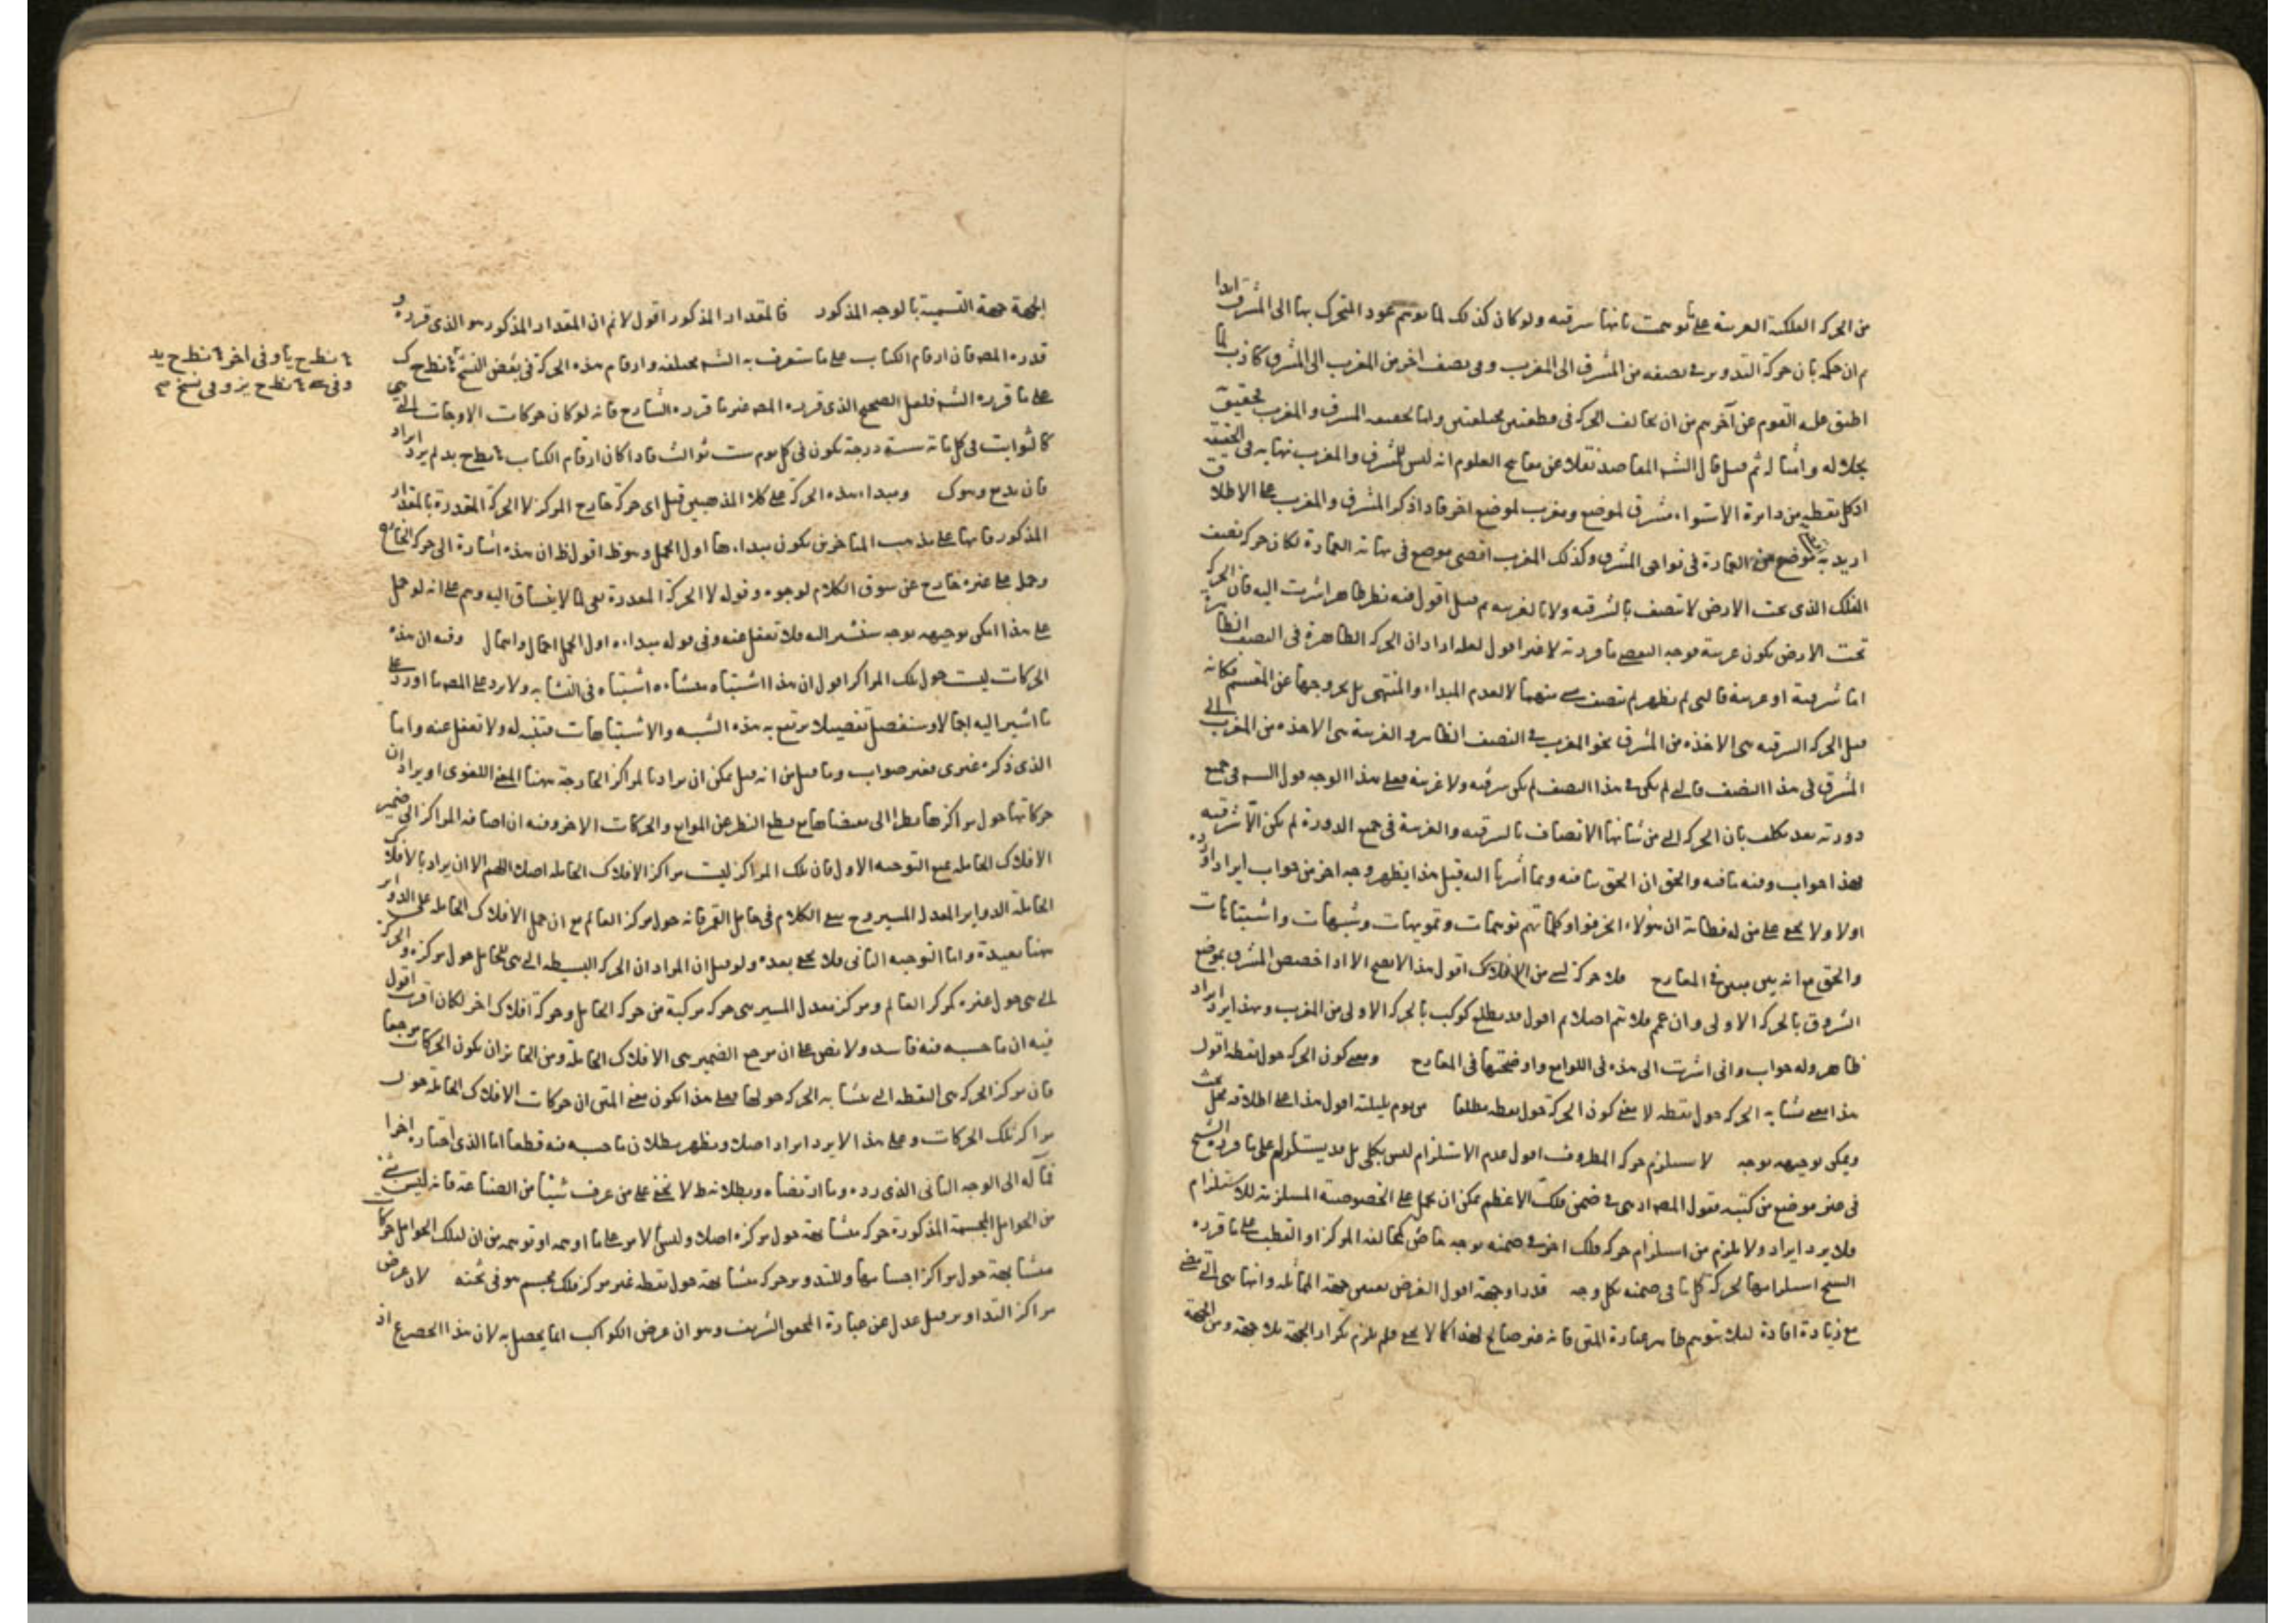 من الحركة الفلكية الغربية على ما توهمت بانها شرقية ولو كان كذلك لما توهم عود المتحرك بها الى المشرق ابدا
ثم ان حكمه بان حركة التدوير في نصفه من المشرق الى المغرب وفي نصف اخر من المغرب الى المشرق كاذب لما
اطبق عليه القوم عن آخرهم من ان تخالف الحركة في قطعتين مختلفتين واما تحقيقه المشرق والمغرب تحقيق
بجلاله وامثاله ثم قيل قال الشه المقاصد نقلا عن مفاتيح العلوم انه ليس للمشرق والمغرب نهاية في الحقيقة
اذ كل نقطة من دايرة الاستواء مشرق لموضع ومغرب لموضع اخر فاذا ذكر المشرق والمغرب على الاطلاق
اريد به موضع من العمارة في نواحي المشرق وكذلك المغرب اقصى موضع في نهاية العمارة لكان حركة نصف
الفلك الذي تحت الارض لا تتصف بالشرقية ولا بالغربية ثم قيل اقول فيه نظر ظاهر اشرت اليه فان الحركة
تحت الارض تكون غربية فوجه التفصي ما ورد به لا غير اقول لعله اراد ان الحركة الظاهرة في النصف الظاهر
اما شرقية او غربية فالتي لم تظهر لم تتصف بشي منهما لا لعدم المبداء والمنتهى بل لخروجها عن المقسم فكانه
قيل الحركة الشرقية هي الاخذة من المشرق نحو المغرب في النصف الظاهر والغربية هي الاخذة من المغرب الى
المشرق في هذا النصف فالتي لم تكن في هذا النصف لم تكن شرقية ولا غربية فعلى هذا الوجه قول الشه في جميع
دورته بعد تكلف بان الحركة التي من شانها الاتصاف بالشرقية والغربية في جميع الدورة لم تكن الا شرقية
فهذا جواب وفيه ما فيه والحق ان الحق ينافيه وبما أشرنا اليه قبل هذا يظهر وجه اخر من جواب ايراد اورده
اولا ولا يخفى على من له فطانة ان هؤلاء انحرفوا وكلماتهم توهمات وتمويهات وشبهات واشتباهات
والحق مع انه بين مبين في المعارج فلا حركة لشي من الافلاك اقول هذا لا يصح الا اذا خصص المشرق بموضع
الشروق بالحركة الاولى وان عمم فلا تتم اصلا ثم اقول قد يطلع كوكب بالحركة الاولى من المغرب وهذا ايراد
ظاهر وله جواب واني اشرت الى هذه في اللوامع واوضحتها في المعارج ومعنى كون الحركة حول نقطة اقول
هذا معنى تشابه الحركة حول نقطة لا معنى كون الحركة حول نقطة مطلقا من يوم بليلته اقول هذا على اطلاقه محل بحث
ويمكن توجيهه بوجه لا يستلزم حركة المظروف اقول عدم الاستلزام ليس بكلي بل قد يستلزم على ما قرره الشيخ
في غير موضع من كتبه فقول المصه اذ هي في ضمن فلك الاعظم يمكن ان يحمل على الخصوصية المستلزمة للاستلزام
فلا يرد ايراد ولا يلزم من استلزام حركة فلك اخر في ضمنه بوجه خاص كتخالف المركز او القطب على ما قرره
الشيخ استلزامها لحركة كل ما في ضمنه بكل وجه قدرا وجهة اقول الغرض تعيين جهة المماثلة وانها هي التي تمضى
مع زيادة افادة لئلا يتوهم ظاهر عبارة المتن فانه غير صالح لهذا كما لا يخفى فلم يلزم تكرار الجهة بلا جهة ومن الجهة
الجهة جهة التسمية بالوجه المذكور فالمقدار المذكور اقول لا نم ان المقدار المذكور هو الذي قرره و
قدره المصه فان ارقام الكتاب على ما ستعرف به الشه مختلفة وارقام هذه الحركة في بعض النسخ ٤ نطح ك
على ما قرره الشه فلعل الصحيح الذي قرره المصه غير ما قرره الشارح فانه لو كان حركات الاوجات التي هي
كالثوابت في كل مائة سنة درجة تكون في كل يوم ست ثوالث فاذا كان ارقام الكتاب ٤ نطح يد لم يرد ايراد
فان يدع وهوك ومبداء هذه الحركة على كلا المذهبين قيل اي حركة خارج المركز لا الحركة المقدرة بالمقدار
المذكور فانها على مذهب المتاخرين تكون مبداءها اول الحمل وهو ظ اقول ظ ان هذه اشارة الى حركة الخارج
وحمل على غيره خارج عن سوق الكلام لوجوه وقوله لا الحركة المقدرة معنى لما لا ينساق اليه وهم على انه لو حمل
على هذا امكن توجيهه بوجه سنشير اليه فلا تغفل عنه وفي قوله مبداءه اول الحمل اجمال واهمال وفيه ان هذه
الحركات ليست حول تلك المراكز اقول ان هذا اشتباه منشاءه اشتباه في التشابه ولا يرد على المصه ما اورد على
ما اشير اليه اجمالا وسنفصل تفصيلا يرتفع به هذه الشبه والاشتباهات فتنبه له ولا تغفل عنه واما
الذي ذكره غيرى فغير صواب وما قيل من انه قيل يمكن ان يراد بالمراكز الخارجة ههنا المعنى اللغوي او يراد ان
حركاتها حول مراكزها نظرا الى بعضها مع قطع النظر عن الموانع والحركات الاخر وفيه ان اضافة المراكز الى ضمير
الافلاك الحاملة يمنع التوجيه الاول فان تلك المراكز ليست مراكز الافلاك الحاملة اصلا اللهم الا ان يراد بالافلاك
الحاملة الدواير المعدل المسير وح يبقى الكلام في حامل القمر فانه حول مركز العالم مع ان حمل الافلاك الحاملة على الدواير
ههنا بعيدة واما التوجيه الثاني فلا يخفى بعده ولو قيل ان المراد ان الحركة البسيطة التي هي للحامل حول مركزه والحركة
التي هي حول غيره كمركز العالم ومركز معدل المسير هي حركة مركبة من حركة الحامل وحركة افلاك اخر لكان اقرب اقول
فيه ان ما حسبه فيه فاسد ولا نص على ان مرجع الضمير هي الافلاك الحاملة ومن الجايز ان يكون الحركات مرجعا
فان مركز الحركة هي النقطة التي تشابه الحركة حولها فعلى هذا يكون معنى المتن ان حركات الافلاك الحاملة حول
مراكز تلك الحركات وعلى هذا لا يرد ايراد اصلا ويظهر بطلان ما حسبه فيه قطعا اما الذي اختاره اخرا
فمآله الى الوجه الثاني الذي رده وما ارتضاه وبطلانه ظ لا يخفى على من عرف شيئا من الصناعة فانه ليس لشئ
من الحوامل المجسمة المذكورة حركة متشابهة حول مركزه اصلا وليس الامر على ما اوهمه او توهمه من ان لتلك الحوامل حركات
متشابهة حول مراكز اجسامها وللتدوير حركة متشابهة حول نقطة غير مركز فلك مجسم هو في ثخنه لان عرض
مراكز التداوير قيل عدل عن عبارة المحقق الشريف وهو ان عرض الكواكب انما يحصل به لان هذا الحصر ع اذ
٤ نطح يا وفي اخر ٤ نطح يد
وفي ٤ نطح يز وفي نسخ